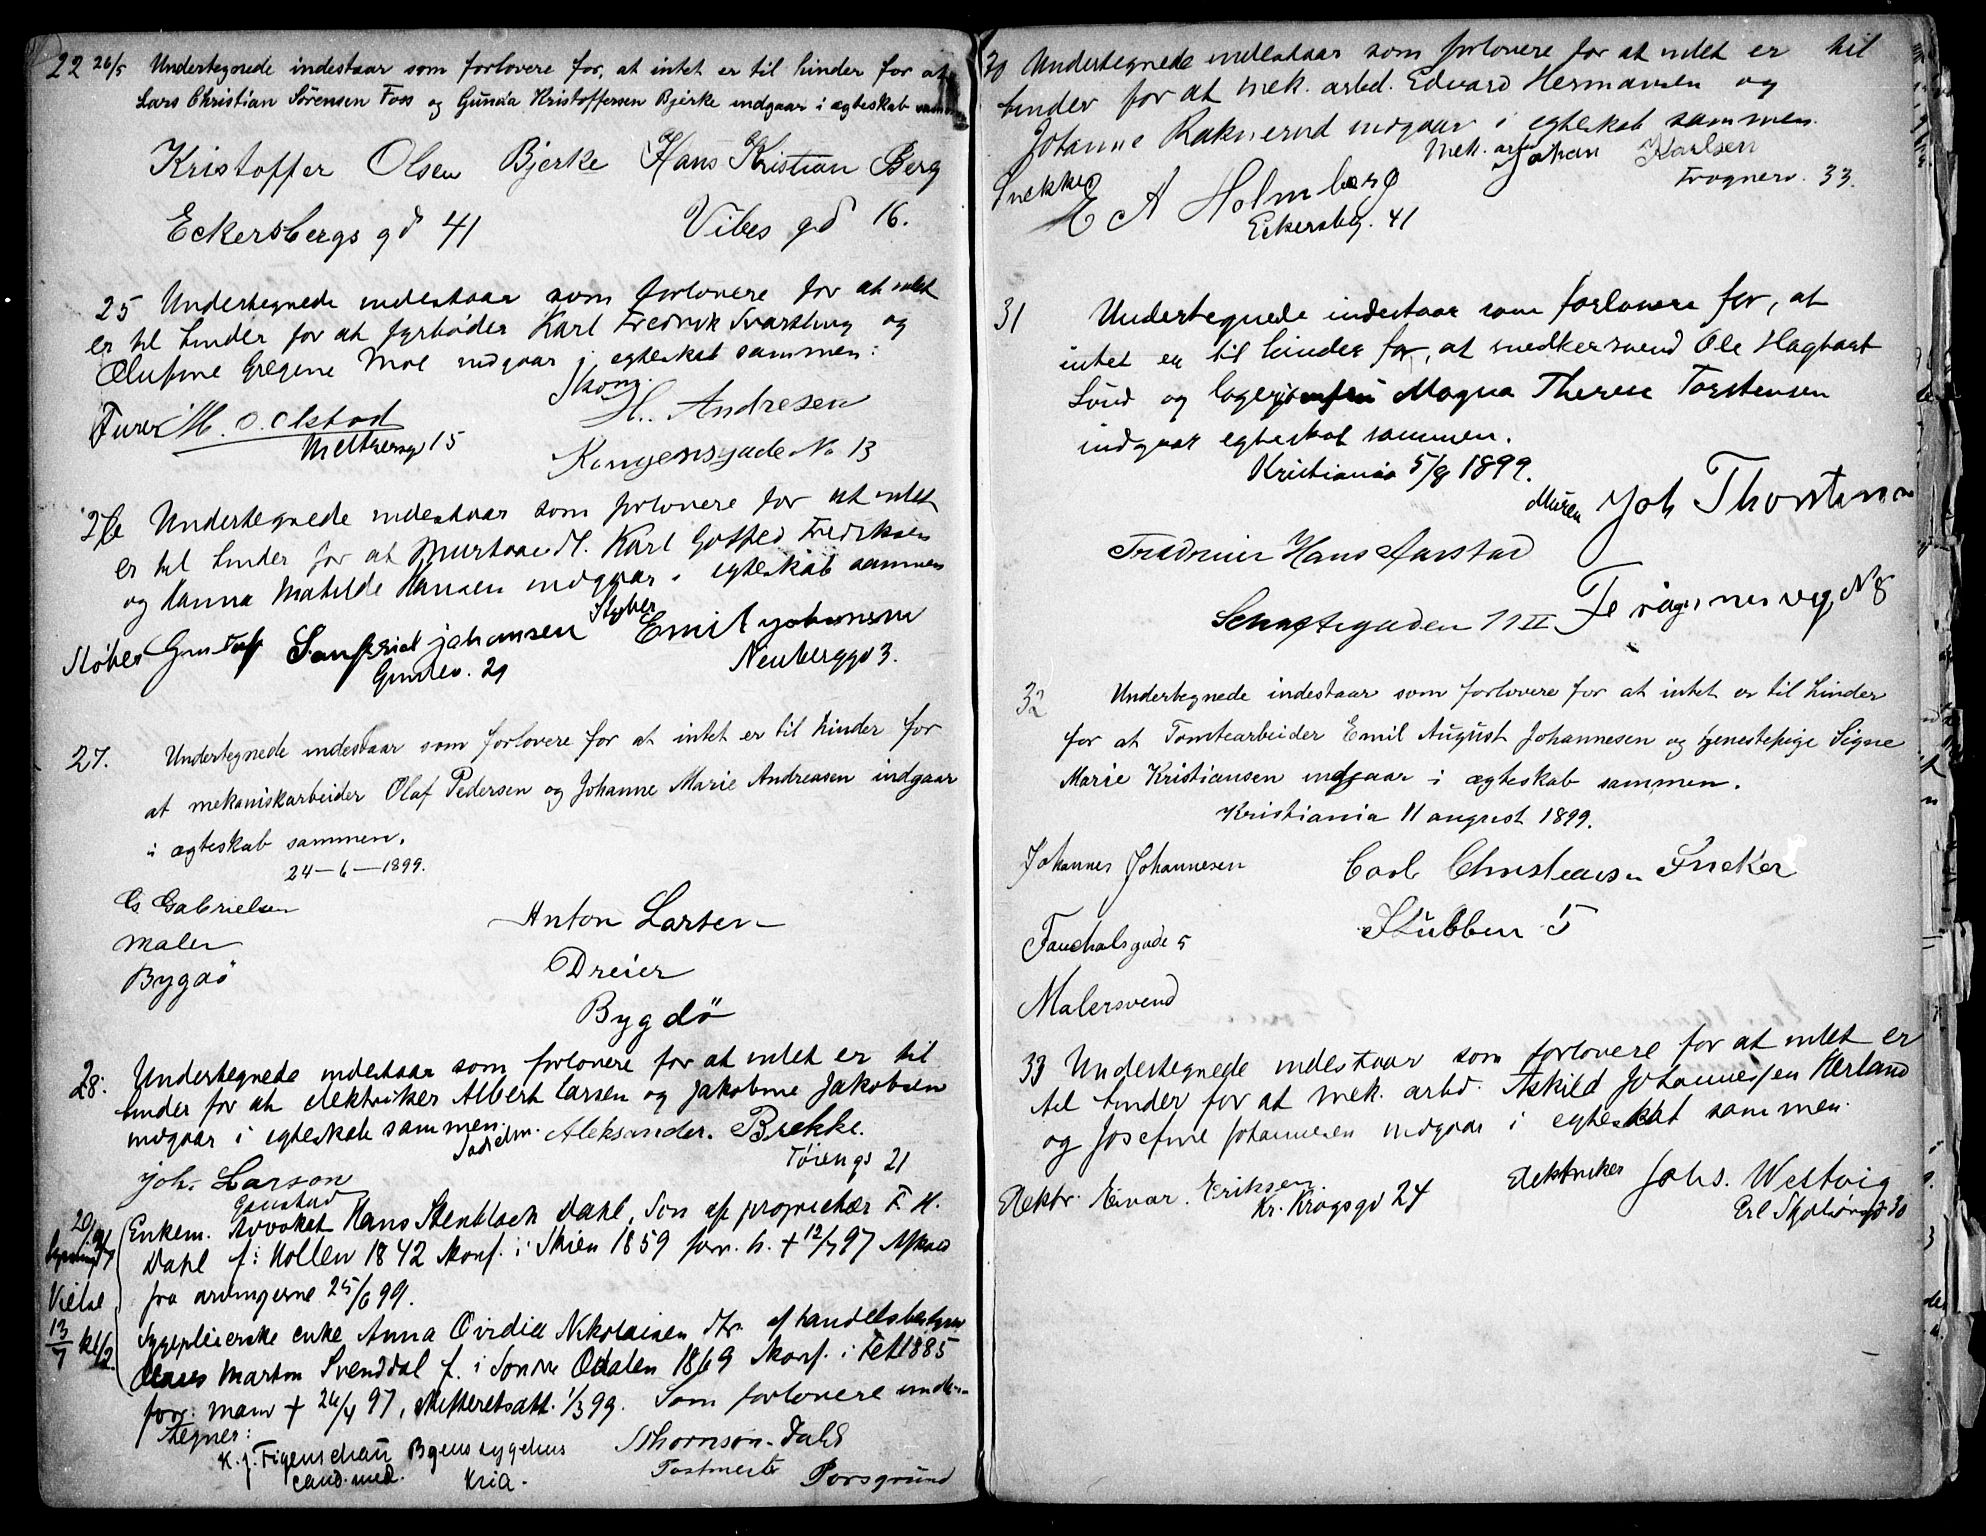 22 26/5 Undertegnede indestaar som forlovere for, at intet er til hinder for at
Lars Christian Sörensen Foss og Gunda Kristoffersen Bjerke indgaar i ægteskab
Kristoffer Olsen Bjerke Hans Kristian Berg
Eckersbergs gd 41 Vibes gd 16.
25 Undertegnede indestaar som forlovere for at intet
er til hinder for at fyrbøder Karl Fredrik Svartling og
Olufine Gregine Moe indgaar i egteskab sammen:
M. O. Olstad H. Andresen
Meltzersg 15 Kongensgade No 13
26 Undertegnede indestaar som forlovere for at intet
er til hinder for at Karl Gotfred Fredriksen
og Hanna Matilde Hansen indgaar i egteskab sammen
Støber Gustaf Sanfrid johansen Støber Emil johansen
29 Neuberggd 3.
27. Undertegnede indestaar som forlovere for at intet er til hinder for
at mekaniskarbeider Olaf Pedersen og Johanne Marie Andreasen indgaar
i ægteskab sammen.
24-6-1899.
G. Gabrielsen Anton Larsen
maler Dreier
Bygdö Bygdö
28. Undertegnede indestaar som forlovere for at intet er til
hinder for at elektriker Albert Larsen og Jakobine Jakobsen
indgaar i egteskab sammen.
Joh. Larson Aleksander. Brekke.
Gaustad Tøiengs 21
Enkem. Advokat Hans Stenbloch Dahl, Søn af proprietær F. H.
Dahl f: Hollen 1842 Konf. i Skien 1859 forr. h. + 12/7 97 Afkald
fra arvingerne 25/6 99.
Vielse
13/7 kl 1/2
Sygepleierske enke Anna Ovidia Nikolaisen dtr. af handelsbestyrer
Claus Marton Svenddal f. i Søndre Odalen 1869 Konf. i Fet 1885
forr: mand + 26/4 97, skifteretsatt. 1/3 99. Som forlovere under-
tegner:
K. J. Figenschau Byens sygehus Thomson-Dahl
cand. med. Kria. Postmester Porsgrund
30 Undertegnede indestaar som forlovere for at intet er til
hinder for at mek. arbd. Edvard Hermansen og
Johanne Raknerud indgaar i egteskab sammen.
Snekker E A Holmberg Mek. arbd Johan Karlsen
Eckersbg. 41 Frognerv. 33.
31 Undertegnede indestaar som forlovere for, at
intet er til hinder for, at snedkersvend Ole Hagbart
Lund og logerjomfru Magna Therese Torstensen
indgaar egteskab sammen.
Kristiania 5/8 1899.
Murer Joh Thorstensen
Hans Aarstad
Schaftegaden 11 II Frognerveg. N 8
32 Undertegnede indestaar som forlovere for at intet er til hinder
for at Tomtearbeider Emil August Johannesen og tjenestepige Signe
Marie Kristiansen indgaar i ægteskab sammen.
Kristiania 11 august 1899.
Johannes Johannesen Carl Christiansen Sneker
Fauchalsgade 5 Stubben 5
Malersvend
33 Undertegnede indestaar som forlovere for at intet er
til hinder for at mek. arbd. Askild Johannessen Herland
og Josefine Johannesen indgaar i egteskab sammen.
Elektr. Einar. Eriksen. Elektriker Johs. Westvig
Kr. Krogsgd 24